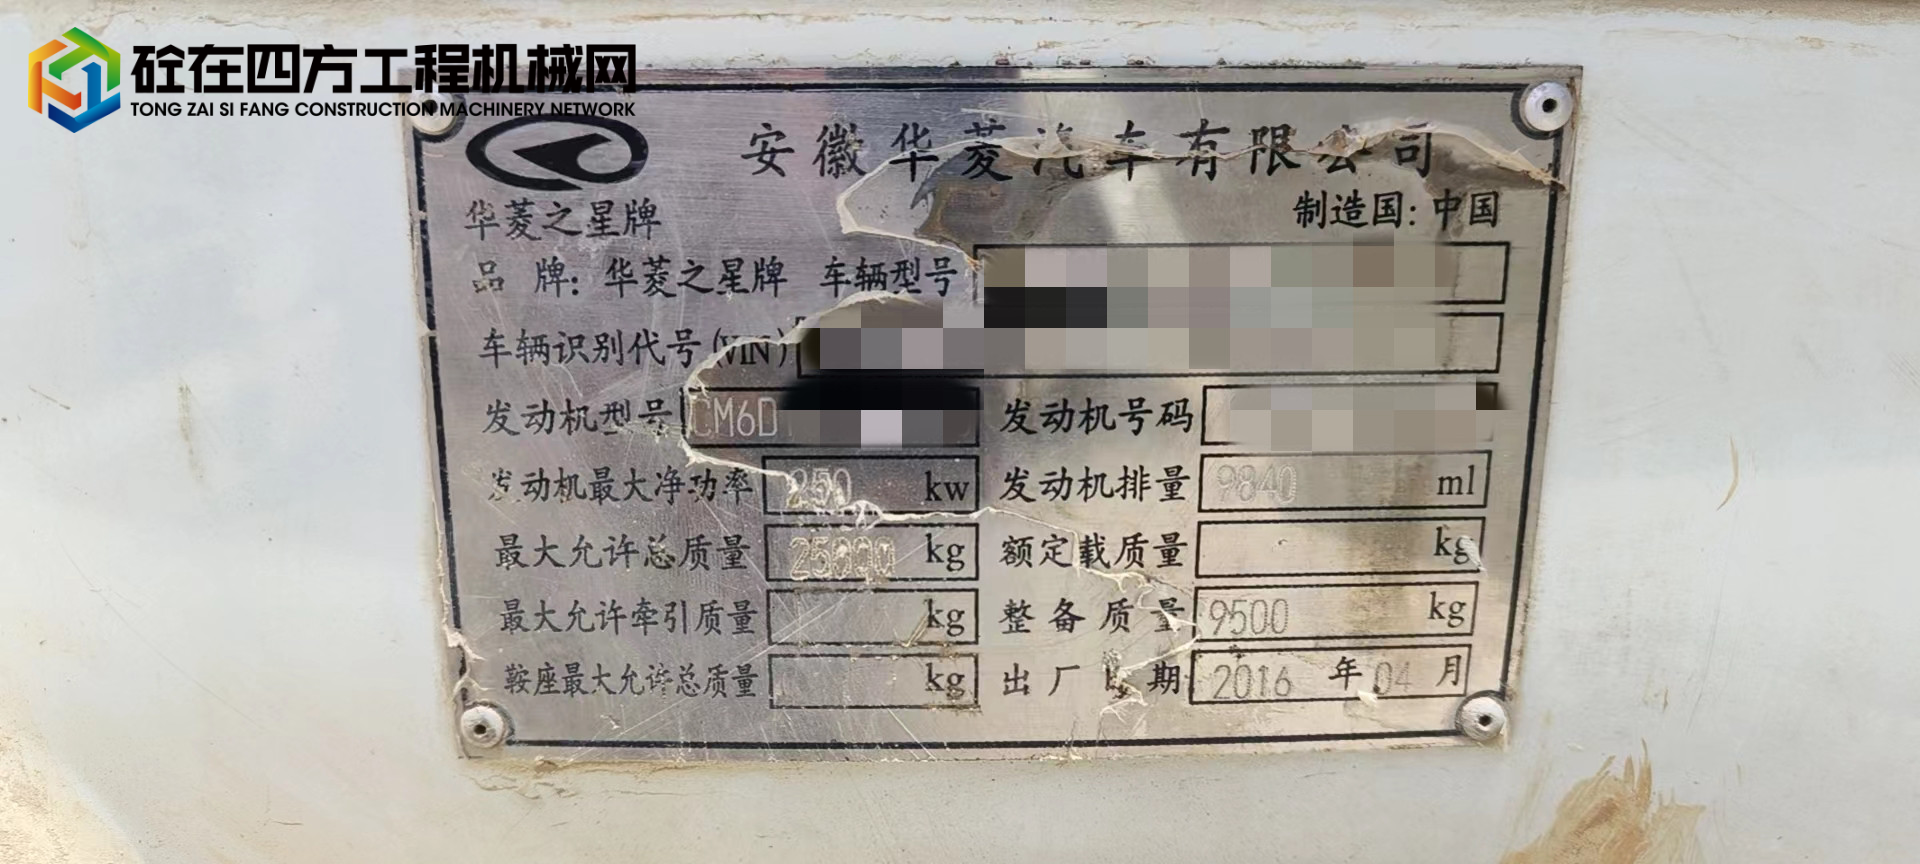 砼在四方工程机械网
TONG ZAI SI FANG CONSTRUCTION MACHINERY NETWORK
安徽华菱汽车有限公司
华菱之星牌 制造国：中国
品 牌：华菱之星牌 车辆型号
车辆识别代号(VIN)
发动机型号 CM6D 发动机号码
发动机最大净功率 250 kw 发动机排量 9840 ml
最大允许总质量 25000 kg 额定载质量 kg
最大允许牵引质量 kg 整备质量 9500 kg
鞍座最大允许总质量 kg 出厂日期 2016 年 04 月